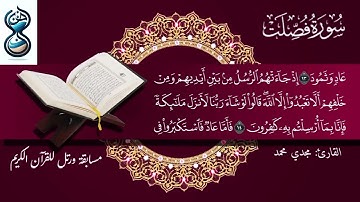 سُورَةُ فُصِّلَتْ
عَادٖ وَثَمُودَ ١٣ إِذۡ جَآءَتۡهُمُ ٱلرُّسُلُ مِنۢ بَيۡنِ أَيۡدِيهِمۡ وَمِنۡ
خَلۡفِهِمۡ أَلَّا تَعۡبُدُوٓاْ إِلَّا ٱللَّهَۖ قَالُواْ لَوۡ شَآءَ رَبُّنَا لَأَنزَلَ مَلَٰٓئِكَةٗ
فَإِنَّا بِمَآ أُرۡسِلۡتُم بِهِۦ كَٰفِرُونَ ١٤ فَأَمَّا عَادٞ فَٱسۡتَكۡبَرُواْ فِي
القارئ: مجدي محمد
مسابقة ورتل للقرآن الكريم